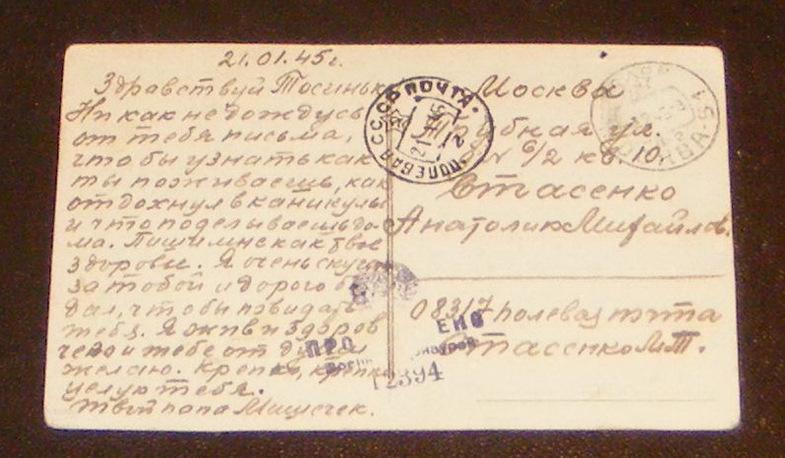 21.01.45г.
Здравствуй Тосинька
Никак не дождусь
от тебя письма,
чтобы узнать как
ты поживаешь, как
отдохнул в каникулы
и что поделываешь до-
ма. Пиши мне как твое
здоровье. Я очень скучаю
за тобой и дорого бы
дал, чтобы повидать
тебя. Я жив и здоров
чего и тебе от души
желаю. Крепко, крепко
целую тебя.
твой папа Мишечек.
СССР ПОЧТА
21 1 45
ПОЛЕВАЯ
Москва
Трубная ул.
№ 6/2 кв. 10.
Стасенко
Анатолию Михайлов.
МОСКВА
08317 полевая почта
Стасенко М.Т.
ПРО ЕНО
12394